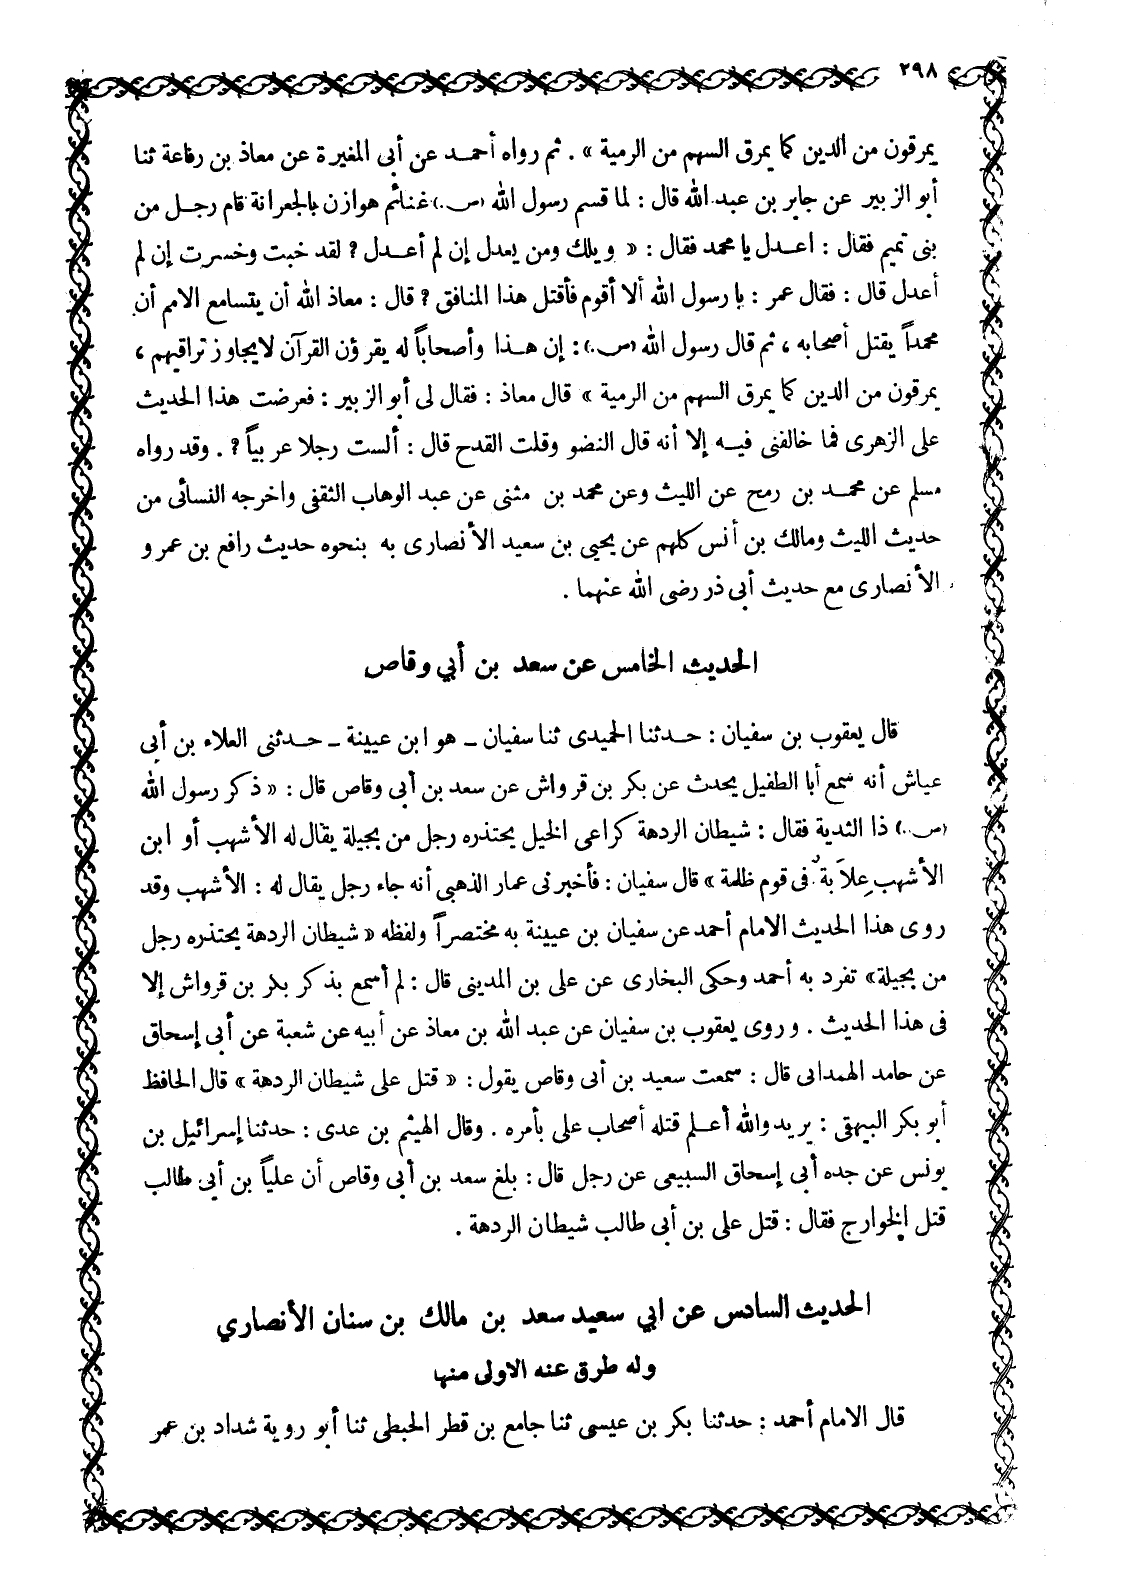 ٢٩٨
يمرقون من الدين كما يمرق السهم من الرمية » . ثم رواه أحمـد عن أبى المغيرة عن معاذ بن رفاعة ثنا
أبو الزبير عن جابر بن عبد الله قال : لما قسم رسول الله (ص.) غنائم هوازن بالجعرانة قام رجـل من
بنى تميم فقال : اعـدل يا محمد فقال : « ويلك ومن يعدل إن لم أعـدل ? لقد خبت وخسرت إن لم
أعدل قال : فقال عمر : يا رسول الله ألا أقوم فأقتل هذا المنافق ? قال : معاذ الله أن يتسامع الامم أن
محمداً يقتل أصحابه ، ثم قال رسول الله (ص.) : إن هـذا وأصحاباً له يقرؤن القرآن لايجاوز تراقيهم ،
يمرقون من الدين كما يمرق السهم من الرمية » قال معاذ : فقال لى أبو الزبير : فعرضت هذا الحديث
على الزهرى فما خالفنى فيـه إلا أنه قال النضو وقلت القدح قال : ألست رجلا عربياً ? . وقد رواه
مسلم عن محمـد بن رمح عن الليث وعن محمد بن مثنى عن عبد الوهاب الثقفى واخرجه النسائى من
حديث الليث ومالك بن أنس كلهم عن يحيى بن سعيد الأنصارى به بنحوه حديث رافع بن عمرو
الأنصارى مع حديث أبى ذر رضى الله عنهما .
الحديث الخامس عن سعد بن أبي وقاص
قال يعقوب بن سفيان : حـدثنا الحميدى ثنا سفيان ـ هو ابن عيينة ـ حـدثنى العلاء بن أبى
عياش أنه سمع أبا الطفيل يحدث عن بكر بن قرواش عن سعد بن أبى وقاص قال : « ذكر رسول الله
(ص..) ذا الثدية فقال : شيطان الردهة كراعى الخيل يحتذره رجل من بجيلة يقال له الأشهب أو ابن
الأشهب علابة فى قوم ظلمة » قال سفيان : فأخبرنى عمار الذهبى أنه جاء رجل يقال له : الأشهب وقد
روى هذا الحديث الامام أحمد عن سفيان بن عيينة به مختصراً ولفظه « شيطان الردهة يحتذره رجل
من بجيلة» تفرد به أحمد وحكى البخارى عن على بن المدينى قال : لم أسمع بذكر بكر بن قرواش إلا
فى هذا الحديث . وروى يعقوب بن سفيان عن عبد الله بن معاذ عن أبيه عن شعبة عن أبى إسحاق
عن حامد الهمدانى قال : سمعت سعيد بن أبى وقاص يقول : « قتل على شيطان الردهة » قال الحافظ
أبو بكر البيهقى : يريد والله أعـلم قتله أصحاب على بأمره . وقال الهيثم بن عدى : حدثنا إسرائيل بن
يونس عن جده أبى إسحاق السبيعى عن رجل قال : بلغ سعد بن أبى وقاص أن علياً بن أبى طالب
قتل الخوارج فقال : قتل على بن أبى طالب شيطان الردهة .
الحديث السادس عن ابي سعيد سعد بن مالك بن سنان الأنصاري
وله طرق عنه الاولى منها
قال الامام أحمد : حدثنا بكر بن عيسى ثنا جامع بن قطر الحبطى ثنا أبو روية شداد بن عمر